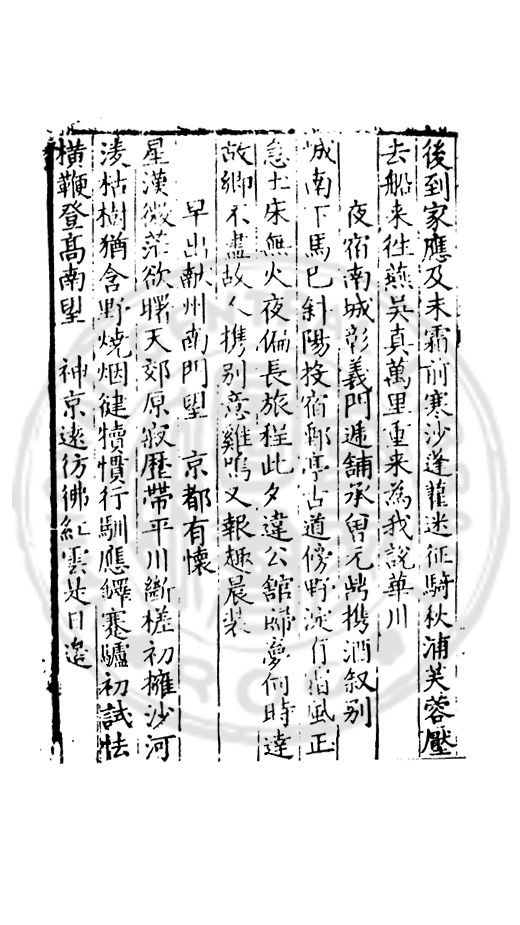 後到家應及未霜前寒沙蓬藋迷征騎秋浦芙蓉壓
去船来往燕吳真萬里重来為我說華川
夜宿南城彰義門遞舖承曾元㪽携酒叙别
城南下馬已斜陽投宿郵亭古道傍野淀有霜風正
急土床無火夜偏長旅程此夕違公舘歸夢何時達
故鄉不盡故人携别意雞鳴又報趣晨装
早出献州南門望 京都有懷
星漢微茫欲曙天郊原寂歷帶平川斷槎初擁沙河
淩枯樹猶含野燒烟健犢慣行馴應鐸蹇驢初試怯
横鞭登高南望 神京遠彷彿紅雲北日邉